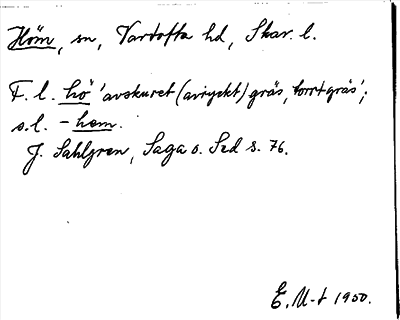 Höm, sn, Vartofta hd, Skar. l.
F. l. hö 'avskuret (avryckt) gräs, torrt gräs';
s.l. - hem.
J. Sahlgren, Saga o. Sed s. 76.
E. U-t 1950.